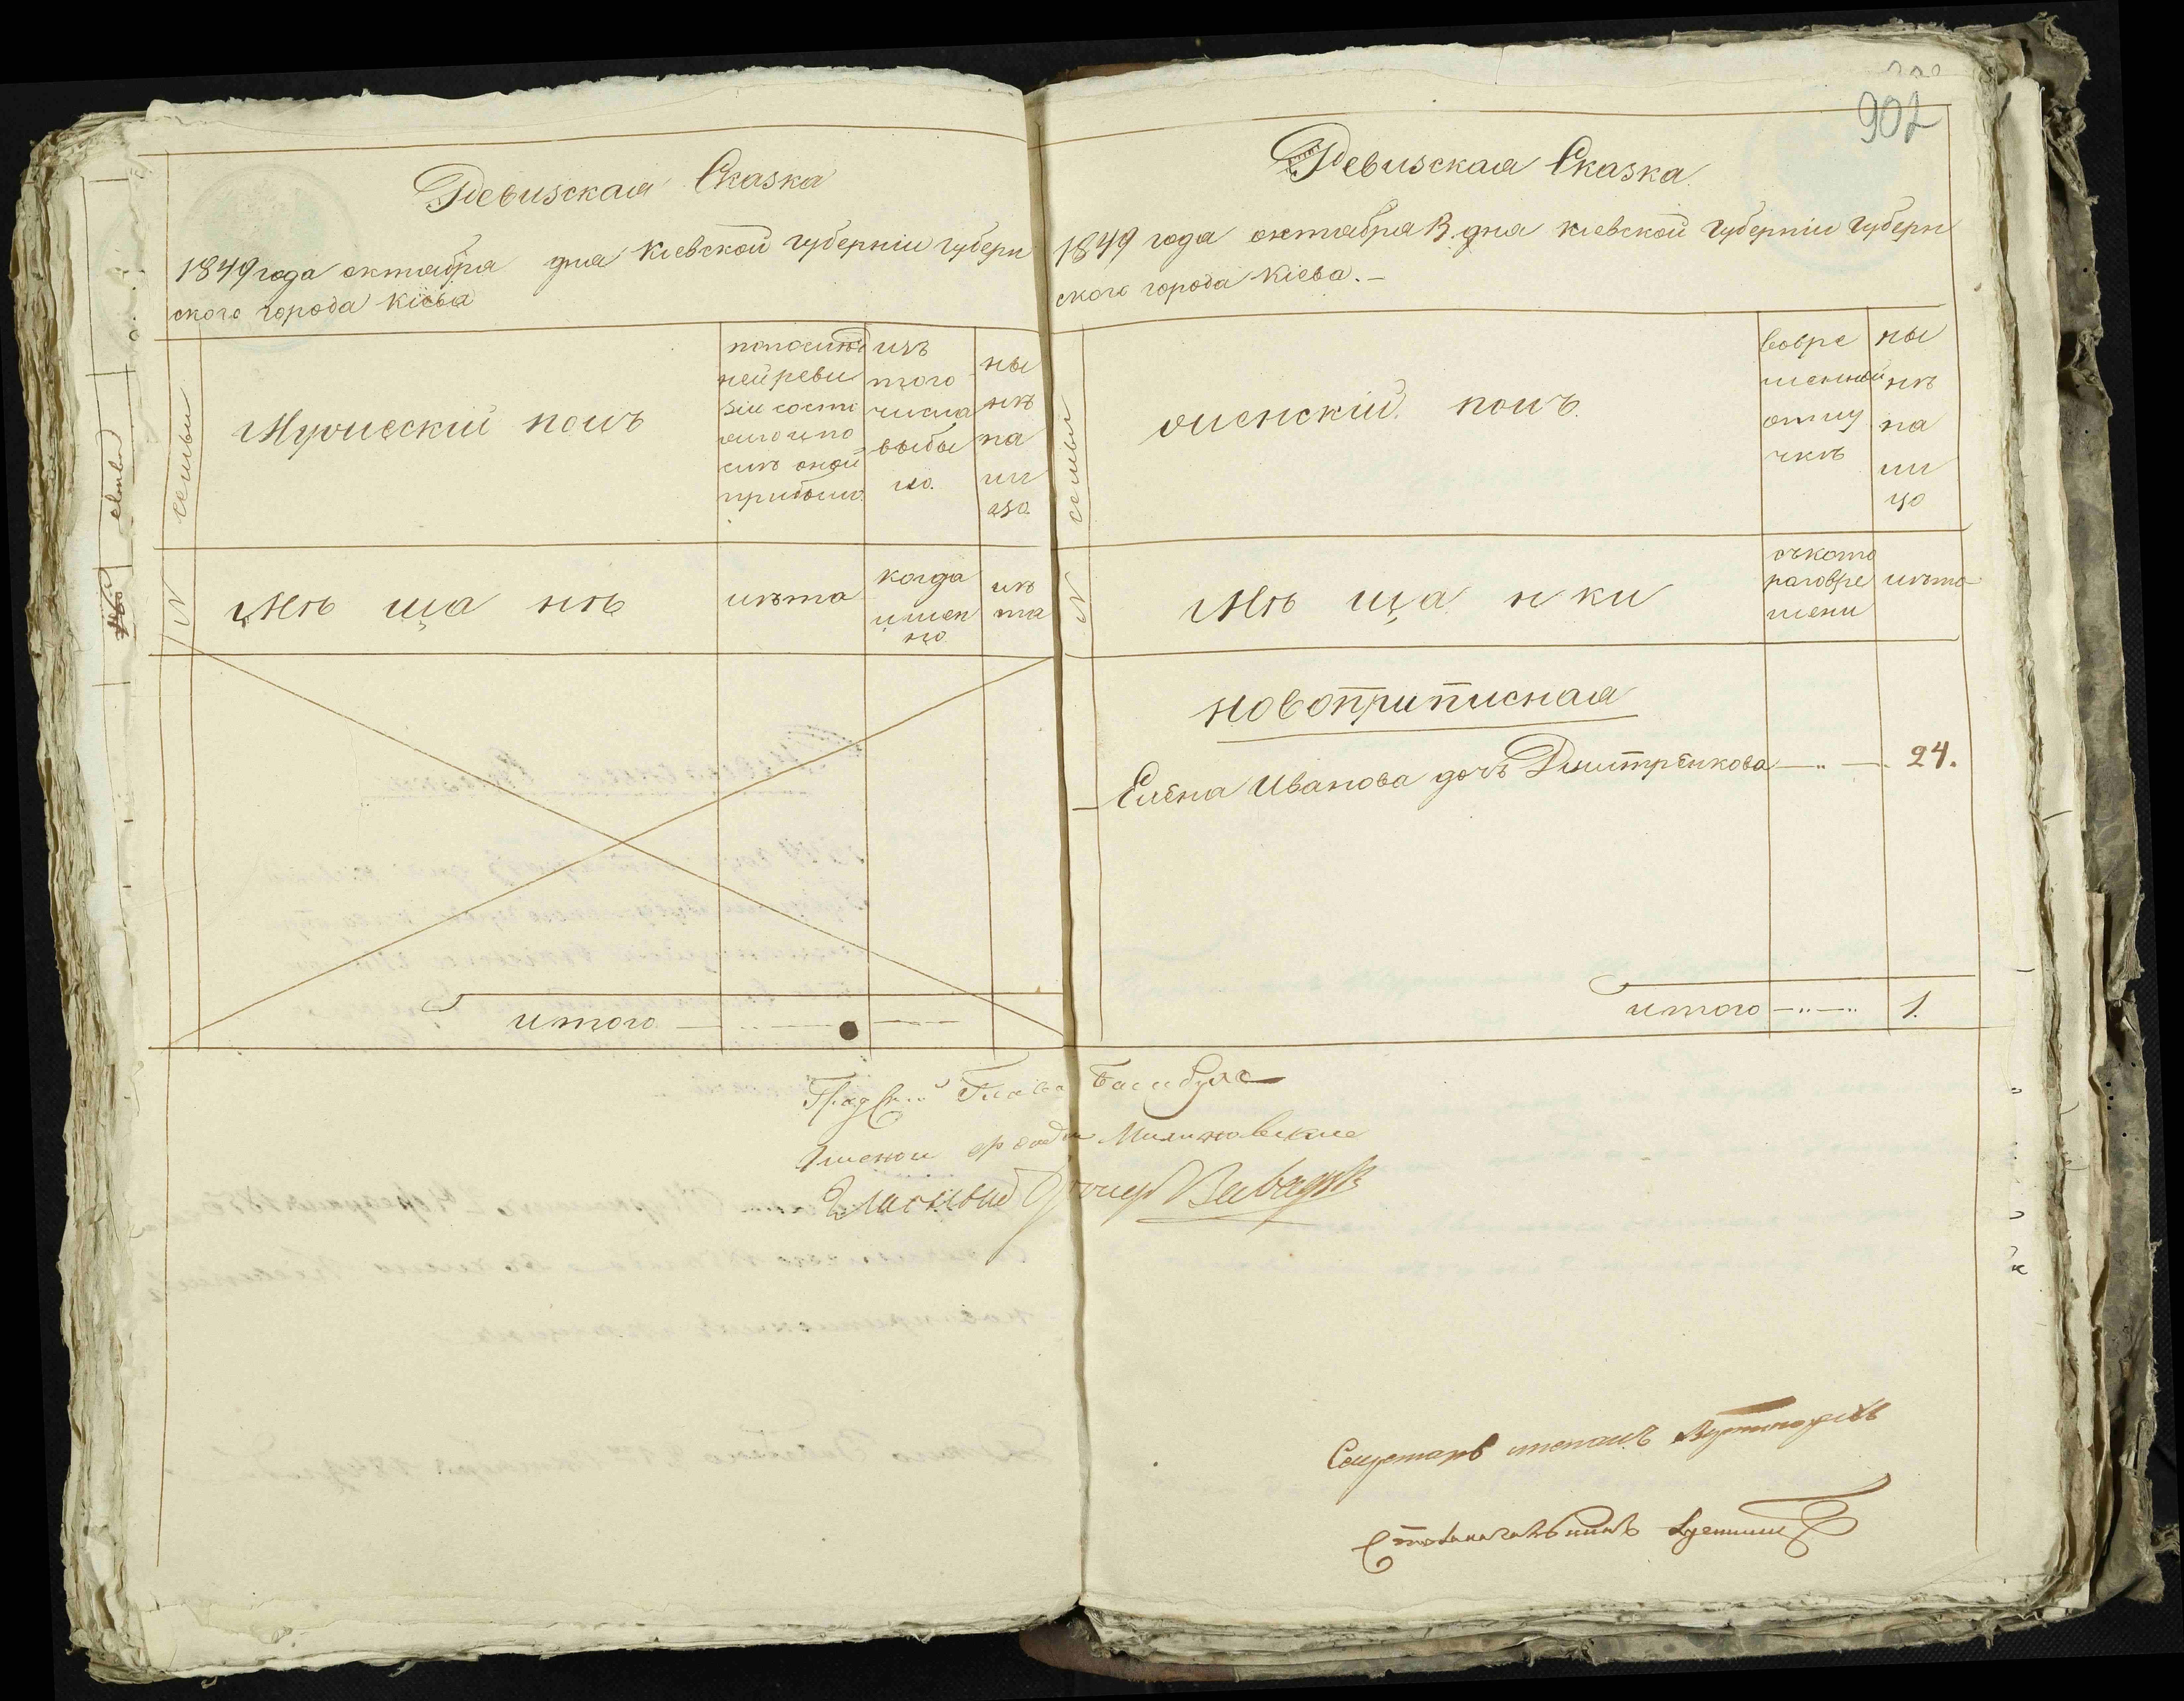 Ревизская Сказка
1849 года октября дня Киевской губернiи губерн
ского города Кiева
семьи
Мужескiй полъ
по послѣд
ней реви
зiи состо
яло и по
слѣ оной
прибыло
изъ
того
числа
выбы
ло.
ны
нѣ
на
ли
цо
№
Мѣ ща не
лѣта
когда
имен
но
лѣ
та
итого
902
Ревизская Сказка
1849 года октября 13. дня киевской губернiи губерн
ского города Кiева. —
семьи
женскiй полъ.
вовре
менной
отлу
чкѣ
ны
нѣ
на
ли
цо
№
Мѣ ща нки
съ кото
раго вре
мени
лѣта
новоприписная
Елена Иванова дочь Дмитренкова — 24.
итого — 1.
Градскiй Глава
Гласный
Секретарь
Столоначальникъ